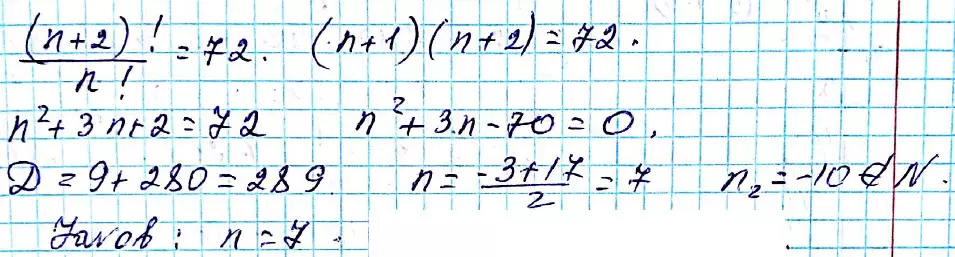 (n+2)!/n! = 72. (n+1)(n+2)=72.
n²+3n+2=72 n²+3n-70=0.
D=9+280=289. n=(-3+17)/2=7 n₂=-10∉N.
: n=7.